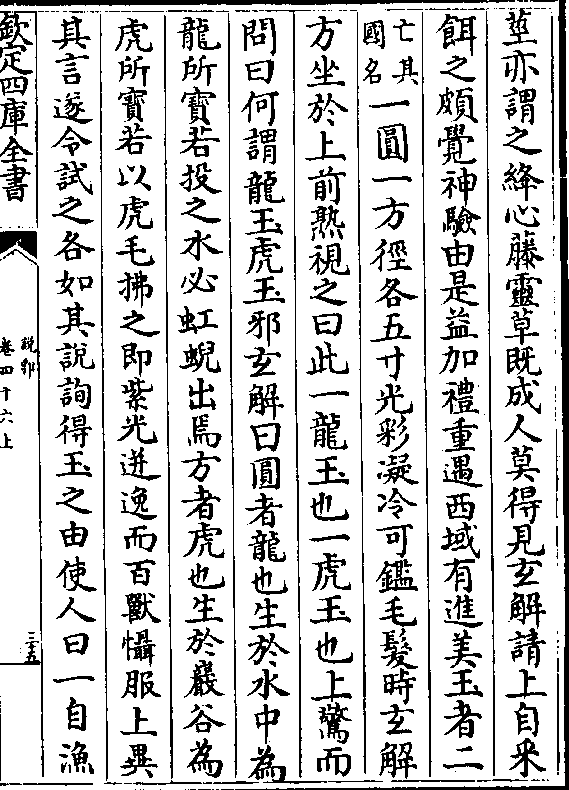 莖亦謂之絳心藤靈草既成人莫得見𤣥解請上自采
餌之頗覺神驗由是益加禮重遇西域有進美玉者二
亡其
國名
一圓一方徑各五寸光彩凝冷可鑑毛髮時𤣥解
方坐於上前熟視之曰此一龍玉也一虎玉也上驚而
問曰何謂龍玉虎玉邪𤣥解曰圓者龍也生於水中為
龍所寶若投之水必虹蜺出焉方者虎也生於巖谷為
虎所寶若以虎毛拂之即紫光迸逸而百獸懾服上異
其言遂令試之各如其說詢得玉之由使人曰一自漁
欽定四庫全書
說郛
卷四十六上
三五